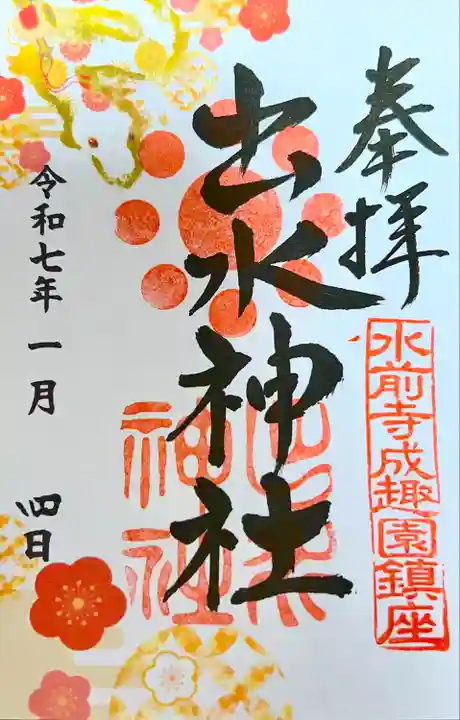 奉拝
水前寺成趣園鎮座
出水神社
出水神社
令和七年一月四日